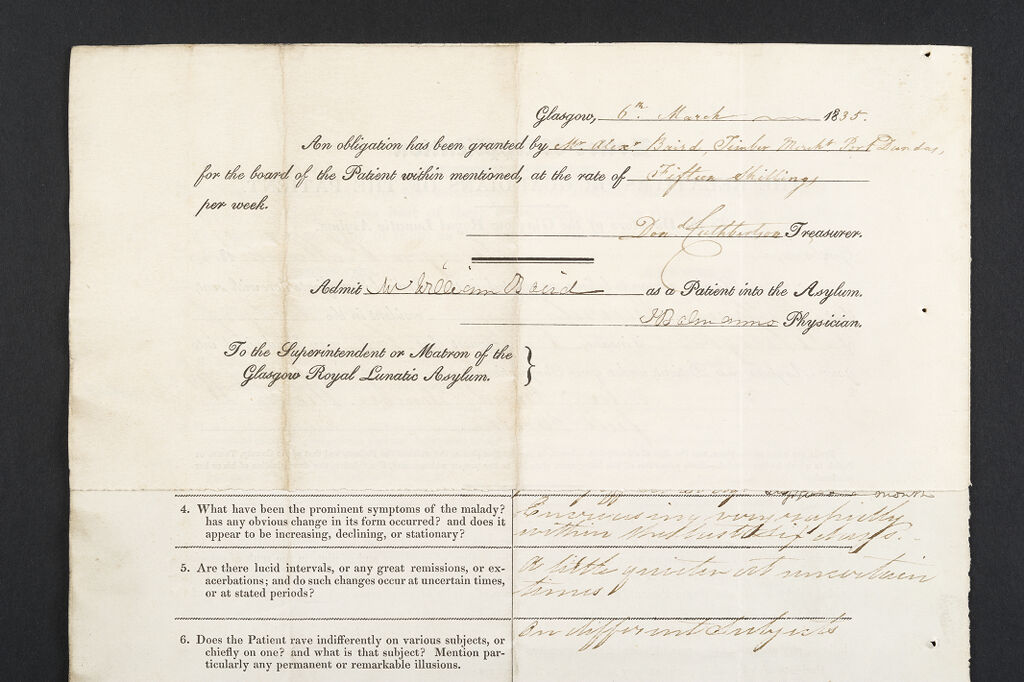 Glasgow, 6th March 1835.
An obligation has been granted by Mr. Alexr Baird, Timber Mercht Port Dundas,
for the board of the Patient within mentioned, at the rate of Fifteen Shillings
per week.
Don. Cuthbertson Treasurer.
Admit Mr William Baird as a Patient into the Asylum.
J Balmanno Physician.
To the Superintendent or Matron of the }
Glasgow Royal Lunatic Asylum.
month
4. What have been the prominent symptoms of the malady? Encreasing very rapidly
has any obvious change in its form occurred? and does it within the last six days.
appear to be increasing, declining, or stationary?
5. Are there lucid intervals, or any great remissions, or ex- A little quieter at uncertain
acerbations; and do such changes occur at uncertain times, times
or at stated periods?
6. Does the Patient rave indifferently on various subjects, or On different Subjects
chiefly on one? and what is that subject? Mention par-
ticularly any permanent or remarkable illusions.